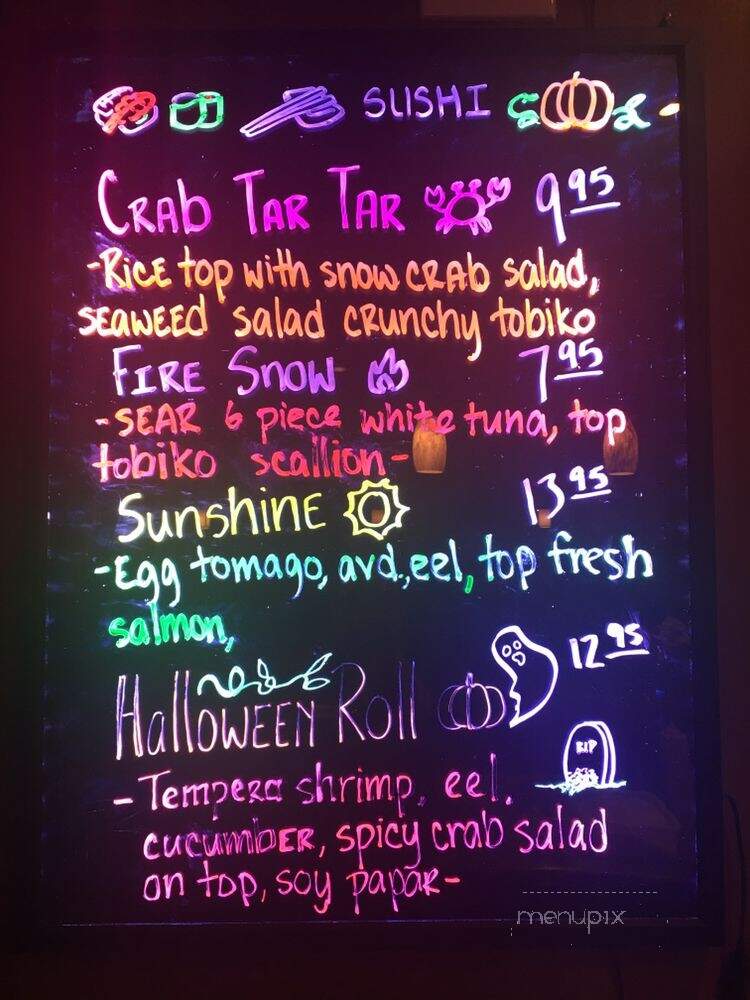 SUSHI
CRAb TAR TAR 9 95
-RicE top with snow CRAb salad,
SEAWEED salad CRUNCHY tobiko
FIRE SNOW 7 95
-SEAR 6 piece white tuna, top
tobiko scallion-
SunshinE 13 95
-Egg tomago, avd.,eel, top fresh
salmon,
HalloWEEN Roll 12 95
RIP
-Tempera shrimp, eel,
cucumbER, spicy crab salad
on top, soy papar-
menupix